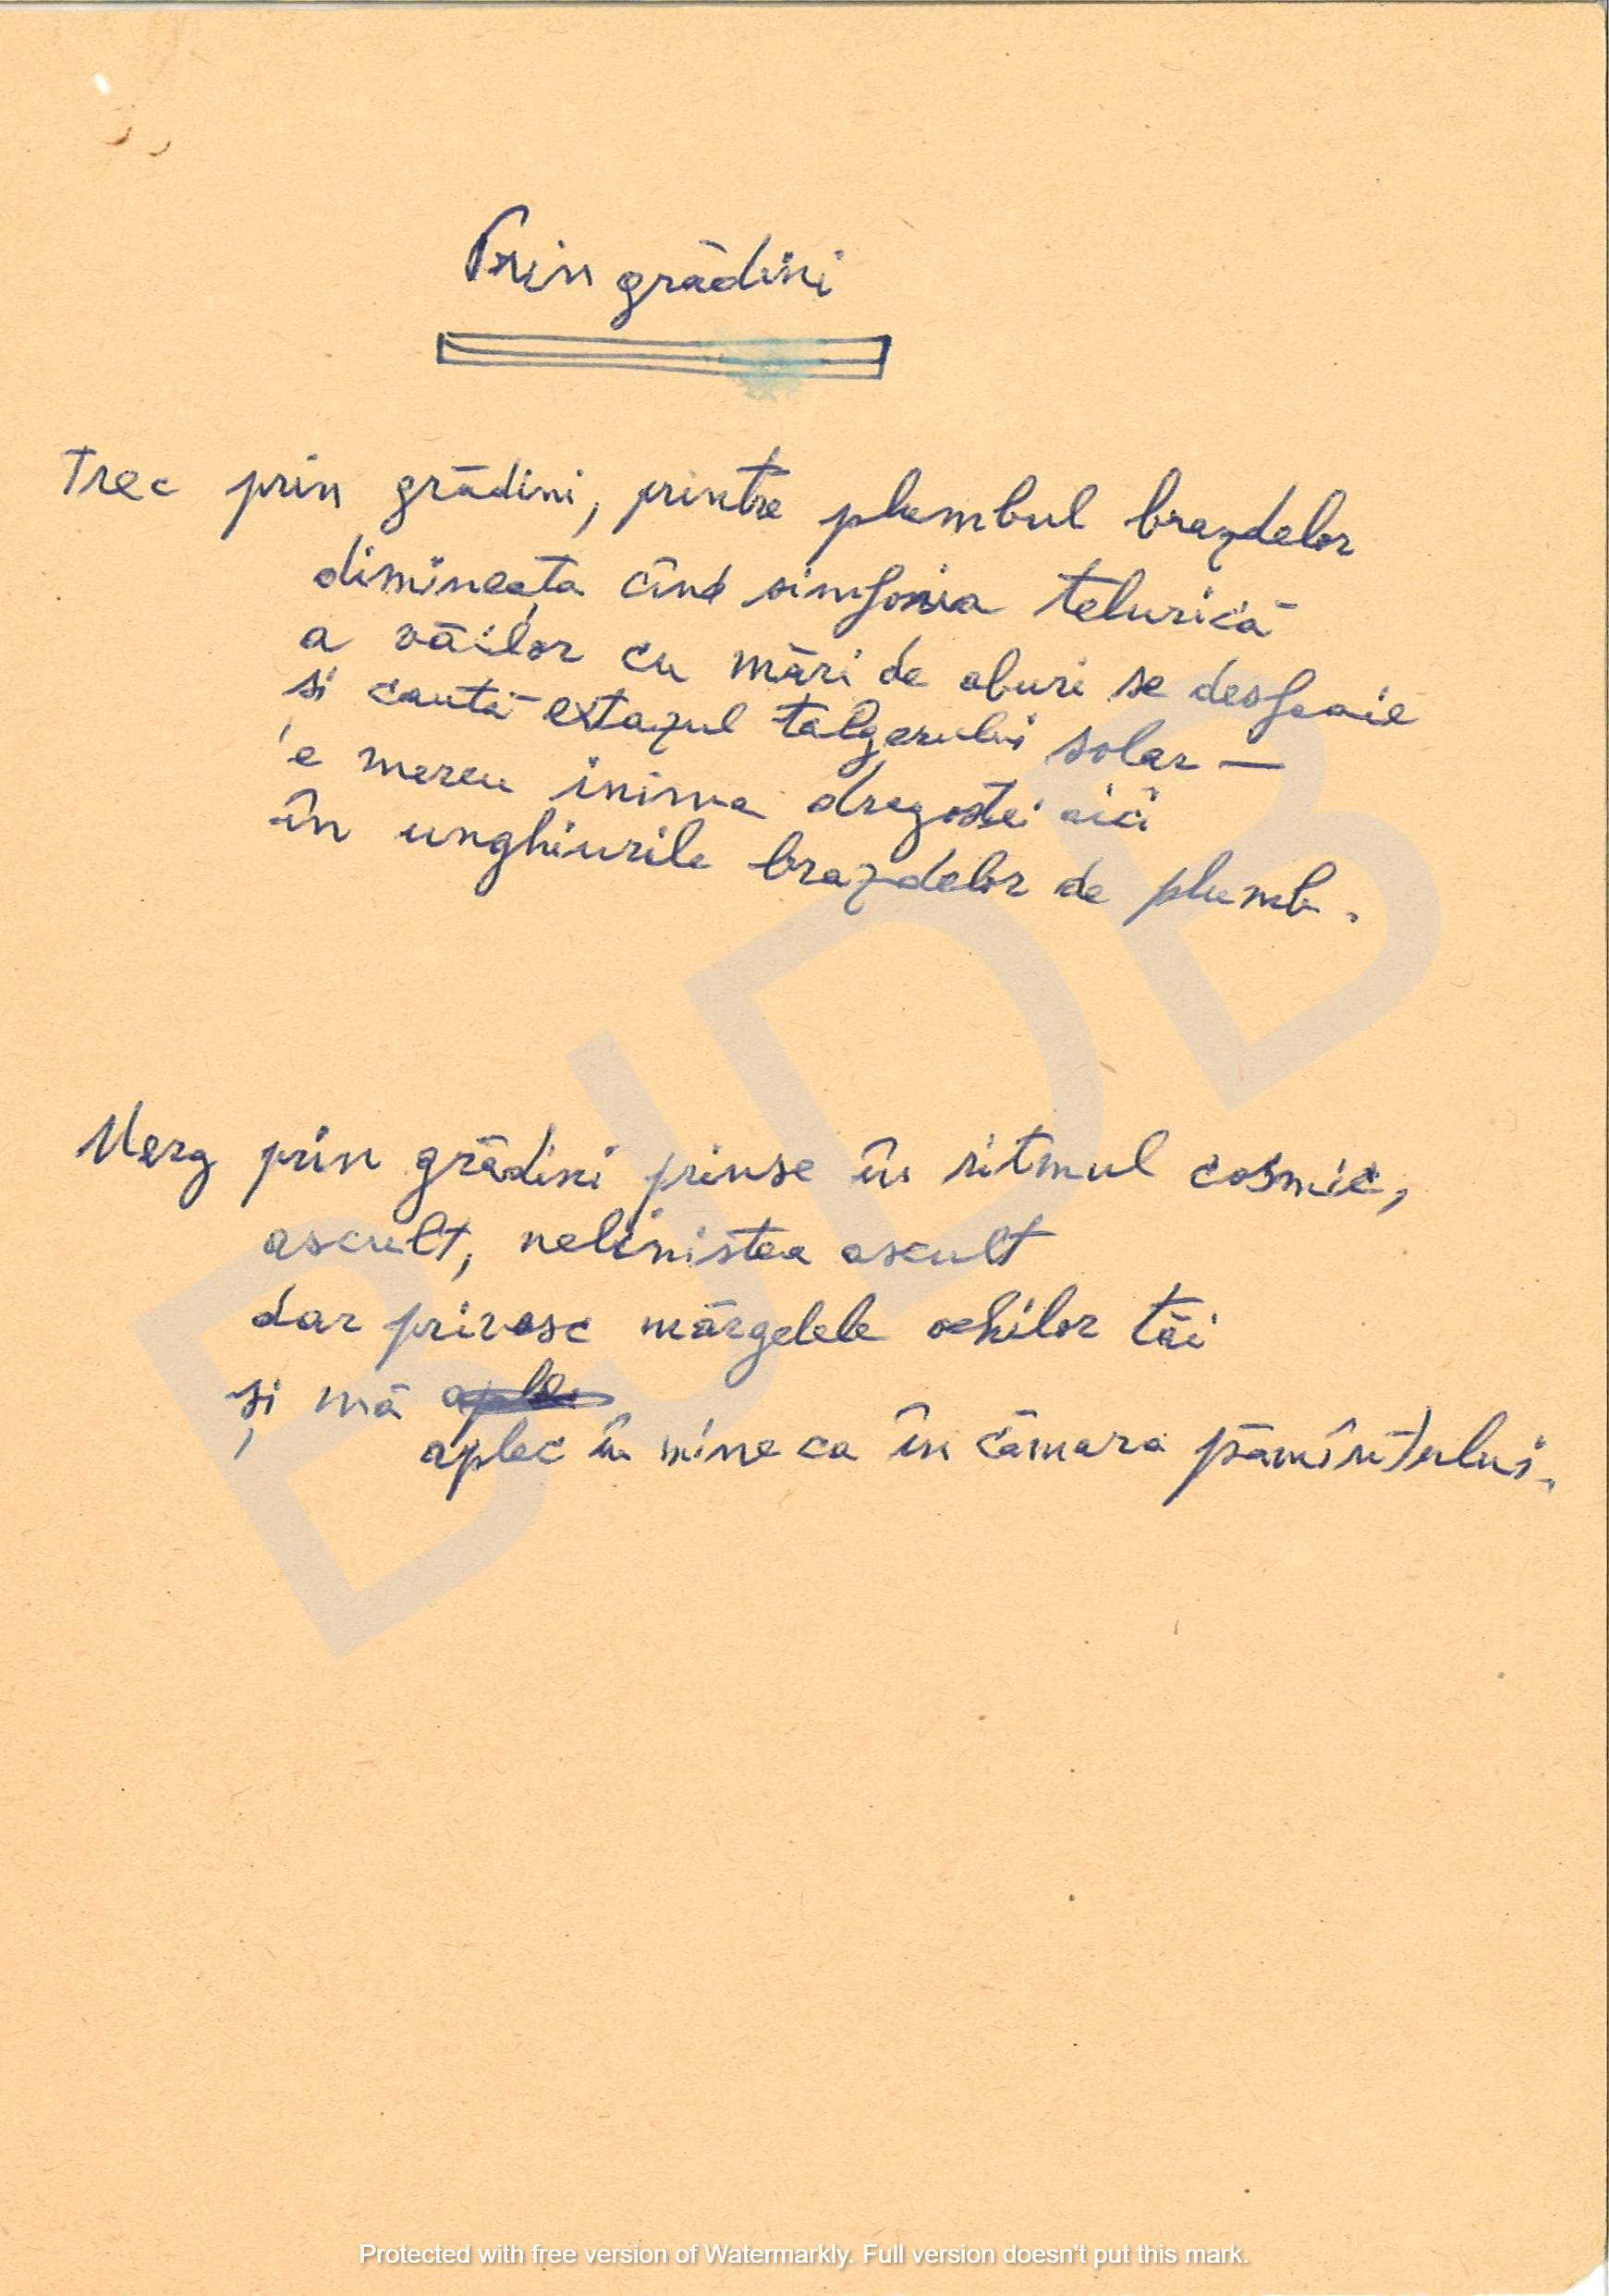 Prin grădini
Trec prin grădini, printre plumbul brazdelor
dimineața cînd simfonia telurică
a văilor cu mări de aburi se desfoaie
și caută extazul talgerului solar —
e mereu inima dragostei aici
în unghiurile brazdelor de plumb.
Merg prin grădini prinse în ritmul cosmic,
ascult, neliniștea ascult
dar privesc mărgelele ochilor tăi
și mă
aplec în mine ca în cămara pămîntului.
BJDB
Protected with free version of Watermarkly. Full version doesn't put this mark.